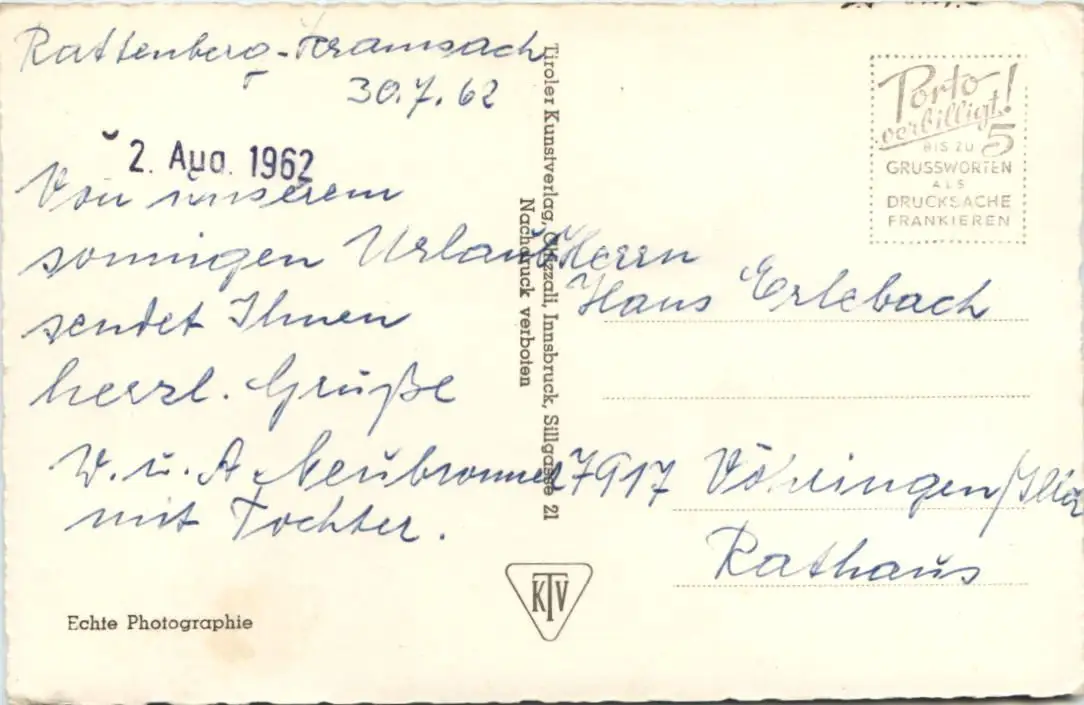 Rattenberg-Kramsach
30.7.62
2. Aug. 1962
Von unserem
sonnigen Urlaub
sendet Ihnen
herzl. Grüße
W. u. A. Neubronner
mit Tochter.
Echte Photographie
Tiroler Kunstverlag, Chizzali, Innsbruck, Sillgasse 21
Nachdruck verboten
KTV
Porto
verbilligt!
BIS ZU 5
GRUSSWORTEN
ALS
DRUCKSACHE
FRANKIEREN
Herrn
Hans Erlebach
7917 Vöhringen/Iller
Rathaus